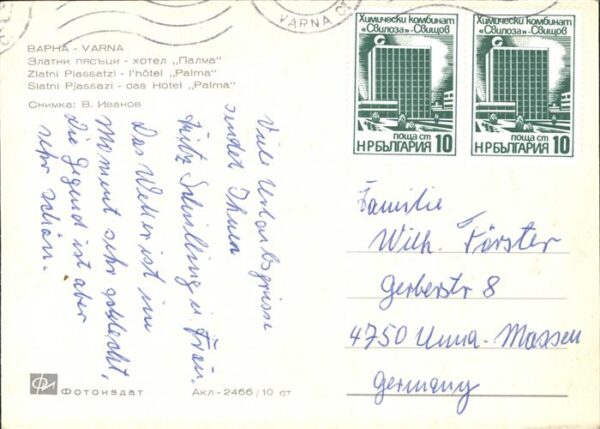 VARNA
ВАРНА - VARNA
Златни пясъци - хотел „Палма“
Zlatni Piassatzi - l'hôtel „Palma“
Slatni Pjassazi - das Hotel „Palma“
Снимка: В. Иванов
Viele Urlaubsgrüsse
sendet Ihnen
Fritz Schilling u. Frau.
Das Wetter ist im
Moment sehr schlecht,
Die Gegend ist aber
sehr schön.
Фотоиздат
Акл-2466/10 ст
Химически комбинат
«Свилоза»-Свищов
поща ст
НРБЪЛГАРИЯ 10
Химически комбинат
«Свилоза»-Свищов
поща ст
НРБЪЛГАРИЯ 10
Familie
Wilh. Förster
Gerberstr 8
4750 Unna-Massen
Germany